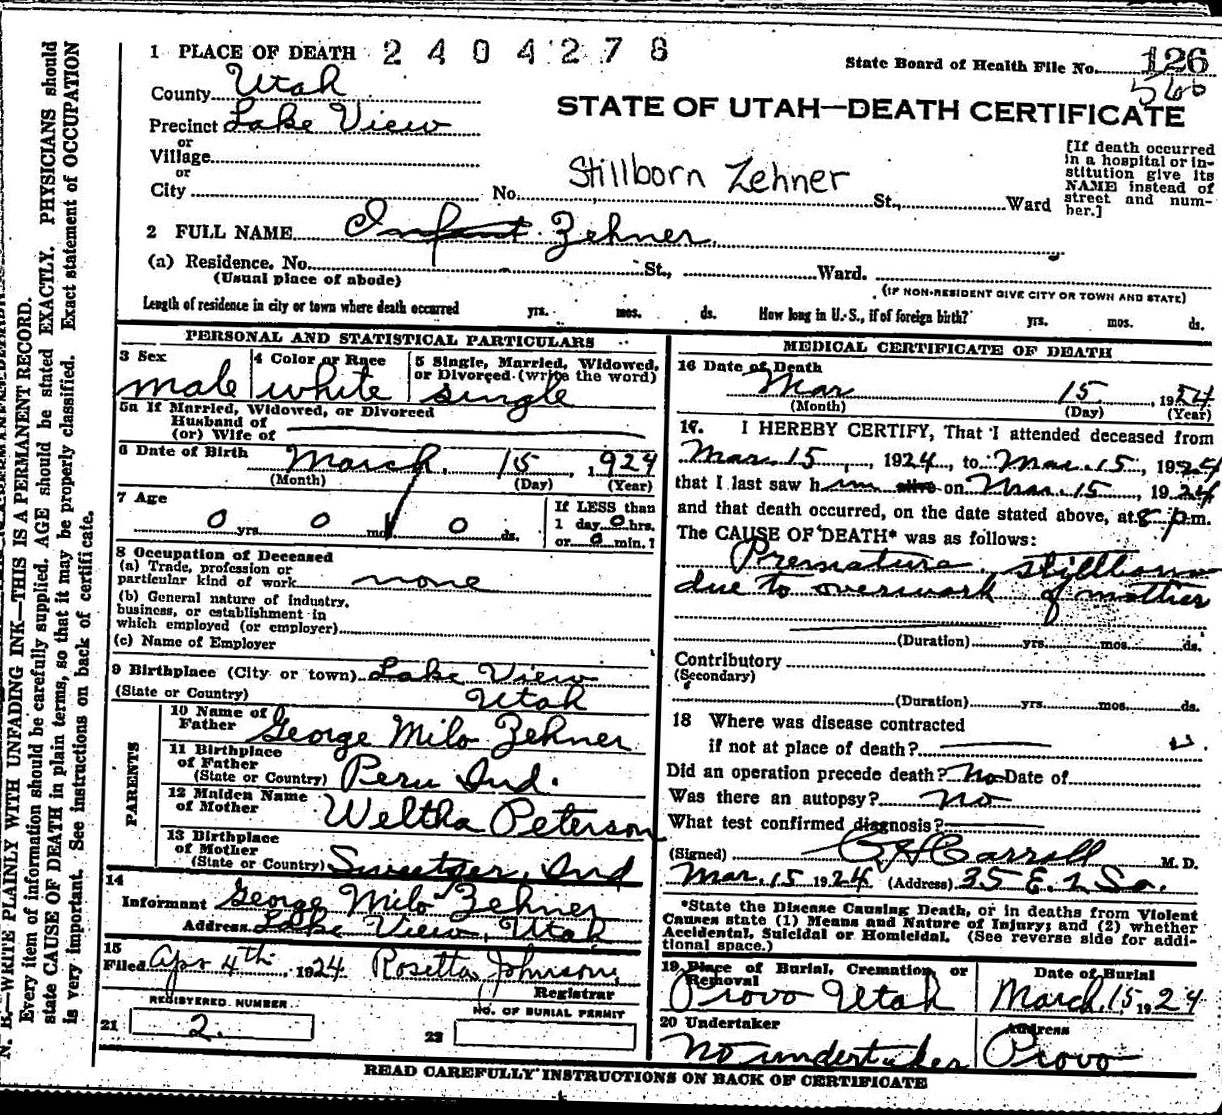 1 PLACE OF DEATH 2404276
State Board of Health File No. 126
566
County Utah
STATE OF UTAH—DEATH CERTIFICATE
Precinct Lake View
or
Village
or
City No. Stillborn Zehner St., Ward
[If death occurred
in a hospital or in-
stitution give its
NAME instead of
street and num-
ber.]
2 FULL NAME Infant Zehner
(a) Residence. No. St., Ward.
(Usual place of abode)
(IF NON-RESIDENT GIVE CITY OR TOWN AND STATE)
Length of residence in city or town where death occurred yrs. mos. ds. How long in U. S., if of foreign birth? yrs. mos. ds.
PERSONAL AND STATISTICAL PARTICULARS
3 Sex
male
4 Color or Race
white
5 Single, Married, Widowed,
or Divorced (write the word)
single
5a If Married, Widowed, or Divorced
Husband of
(or) Wife of
6 Date of Birth March 15, 1924
(Month) (Day) (Year)
7 Age
0 yrs. 0 mos. 0 ds.
If LESS than
1 day 0 hrs.
or 0 min. ?
8 Occupation of Deceased
(a) Trade, profession or
particular kind of work none
(b) General nature of industry,
business, or establishment in
which employed (or employer)
(c) Name of Employer
9 Birthplace (City or town) Lake View
(State or Country) Utah
PARENTS
10 Name of
Father George Milo Zehner
11 Birthplace
of Father
(State or Country) Peru Ind.
12 Maiden Name
of Mother Weltha Peterson
13 Birthplace
of Mother
(State or Country) Sweetser, Ind
14
Informant George Milo Zehner
Address Lake View, Utah
15
Filed Apr 4th, 1924 Rosetta Johnson
Registrar
REGISTERED NUMBER
21 2.
NO. OF BURIAL PERMIT
22
MEDICAL CERTIFICATE OF DEATH
16 Date of Death
Mar 15, 1924
(Month) (Day) (Year)
17. I HEREBY CERTIFY, That I attended deceased from
Mar. 15, 1924, to Mar. 15, 1924
that I last saw him alive on Mar. 15, 1924
and that death occurred, on the date stated above, at 8 p.m.
The CAUSE OF DEATH* was as follows:
Premature stillborn
due to overwork of mother
(Duration) yrs. mos. ds.
Contributory
(Secondary)
(Duration) yrs. mos. ds.
18 Where was disease contracted
if not at place of death?
Did an operation precede death? No Date of
Was there an autopsy? no
What test confirmed diagnosis?
(Signed) Carroll M. D.
Mar. 15 1924 (Address) 35 E. 1 So.
*State the Disease Causing Death, or in deaths from Violent
Causes state (1) Means and Nature of Injury; and (2) whether
Accidental, Suicidal or Homicidal. (See reverse side for addi-
tional space.)
19 Place of Burial, Cremation, or
Removal
Provo Utah
Date of Burial
March 15, 1924
20 Undertaker
No undertaker
Address
Provo
READ CAREFULLY INSTRUCTIONS ON BACK OF CERTIFICATE
N. B.—WRITE PLAINLY WITH UNFADING INK—THIS IS A PERMANENT RECORD.
Every item of information should be carefully supplied. AGE should be stated EXACTLY. PHYSICIANS should
state CAUSE OF DEATH in plain terms, so that it may be properly classified. Exact statement of OCCUPATION
is very important. See instructions on back of certificate.